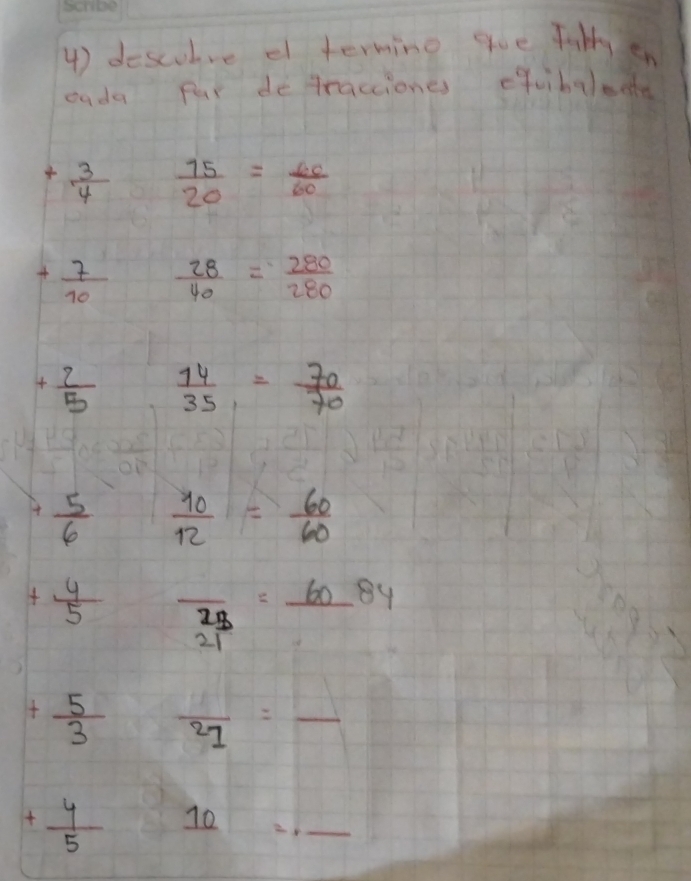 Scribe
4) descubre el termino que falta en
cada par de fracciones equibalente
+ 3/4 15/20 = 60/60
+ 7/10 28/40 = 280/280
+ 2/5 14/35 = 70/70
+ 5/6 10/12 = 60/60
+ 4/5 /21 = 60 84
+ 5/3 /21 =
+ 4/5 10/ =